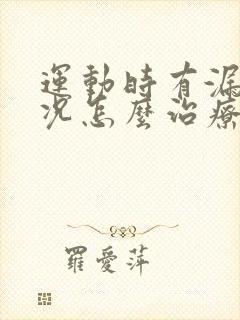 運動時有漏
況怎麼治療
羅愛萍